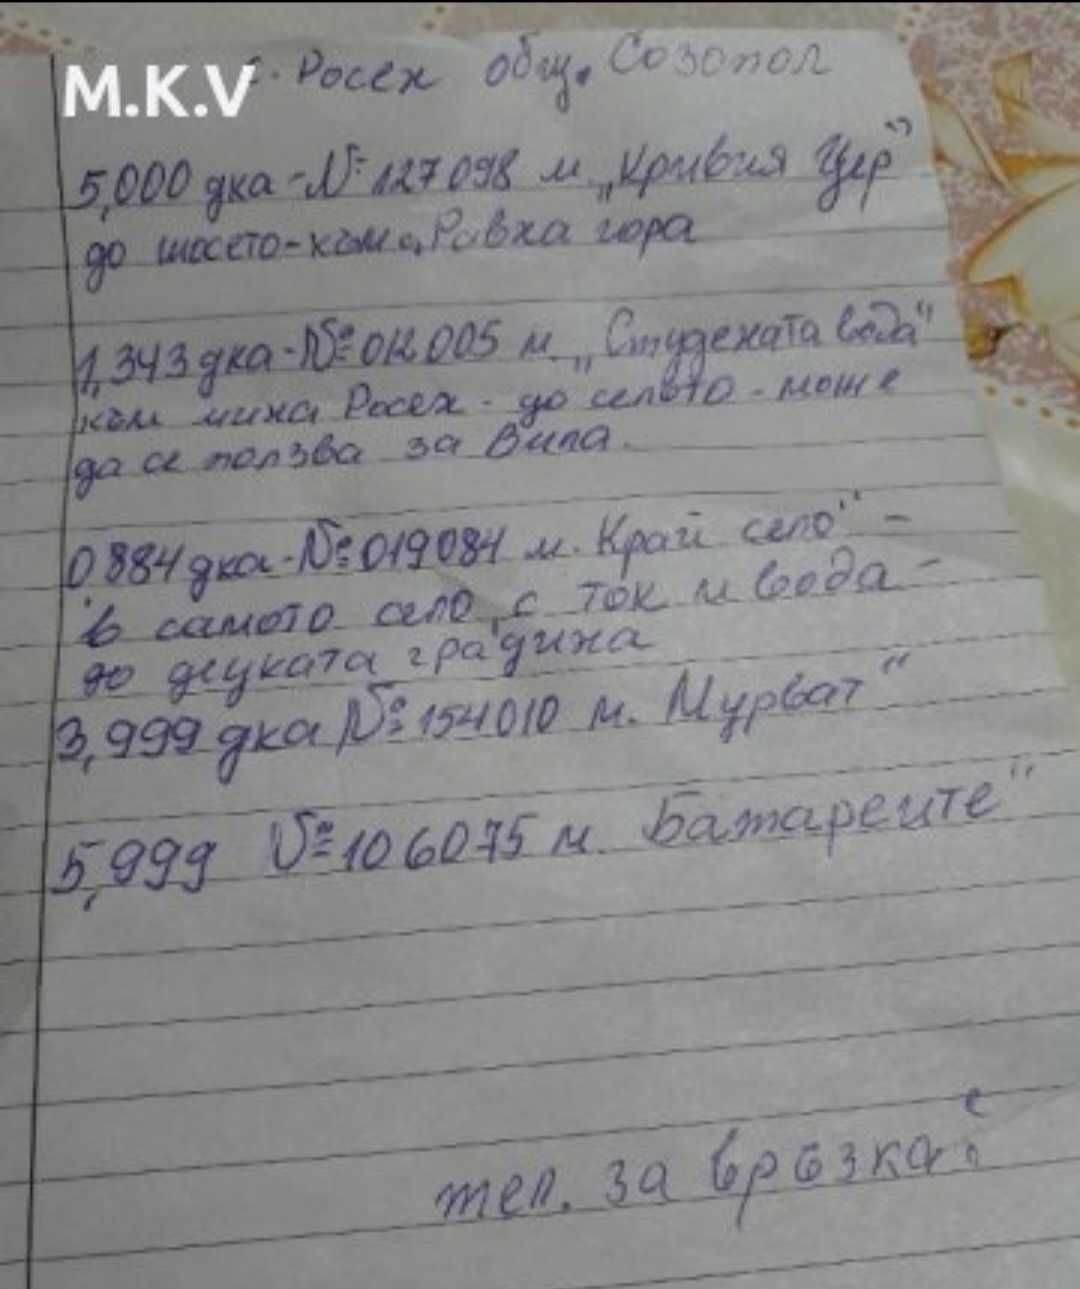 M.K.V
с. Росен общ. Созопол
5,000 дка - № 127098 м „Кривия Цер"
до шосето - към с. Равна гора
1,343 дка - № 012005 м „Студената вода"
към мина Росен - до селото - може
да се ползва за Вила.
0884 дка - № 019084 м. Край село" -
в самото село, с ток и вода -
до децката градина
3,999 дка № 154010 м. Мурват"
5,999 № 106075 м. Батареите"
тел. за връзка: